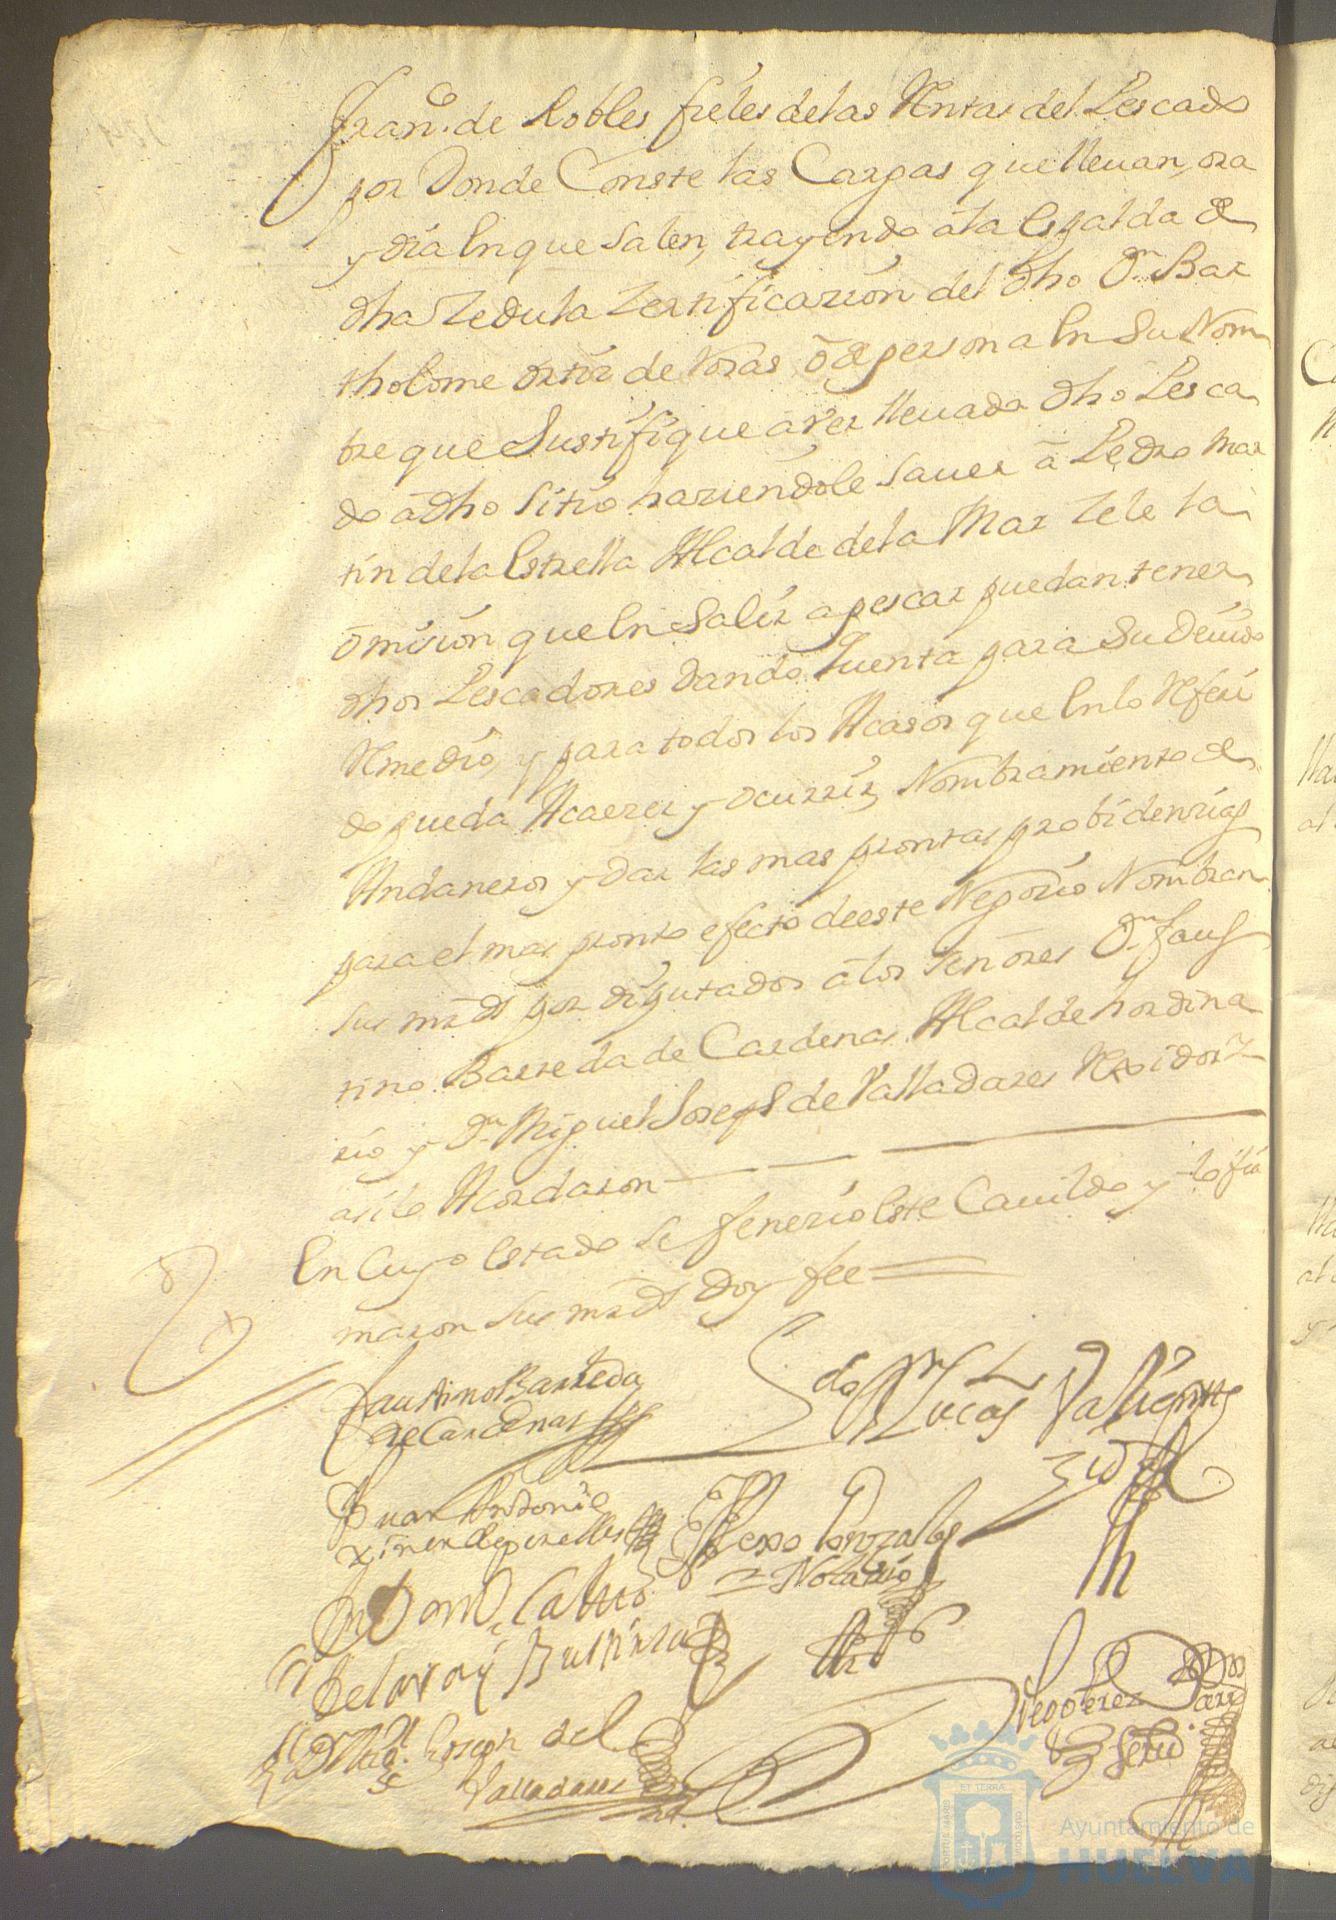 Fran.co de Robles fieles de las Rentas del Pescado
por Donde Conste las Cargas que lleuan, ora
y dia En que salen, trayendo â la Espalda de
dha Zedula Zertificazion del dho Dn Bar
tholome ortiz de ô de persona En Su Nom
bre que Justifique aver lleuado dho Pesca
do â dho sitio haziendole sauer â Pedro Mar
tin de la Estrella Alcalde de la Mar Zele la
omision que En Salir a pescar puedan tener
dhos Pescadores dando quenta para Su Deuido
Remedio, y para todos los Acasos que En lo Referi
do pueda Acaezer y ocurrir, Nombramiento de
Andaneros y dar las mas prontas probidenzias
para el mas pronto efecto de este Negozio Nombran
sus mrds por diputados â los señores Dn Faus
tino Barreda de Cardenas Alcalde hordina
rio y Dn Miguel Joseph de Valladares Rexidor
asi lo Acordaron
En Cuyo Estado se fenezio Este Cauildo y lo fir
maron sus mrds Doy fee
Faustino Barreda
de Cardenas
Lucas Valiente
Juan Antonio
Alexo Gonzales
Notario
Dn Migl Joseph de
Valladares
Diego Perez
ET TERRÆ
PORTUS MARIS
CUSTODIA
Ayuntamiento de
HUELVA